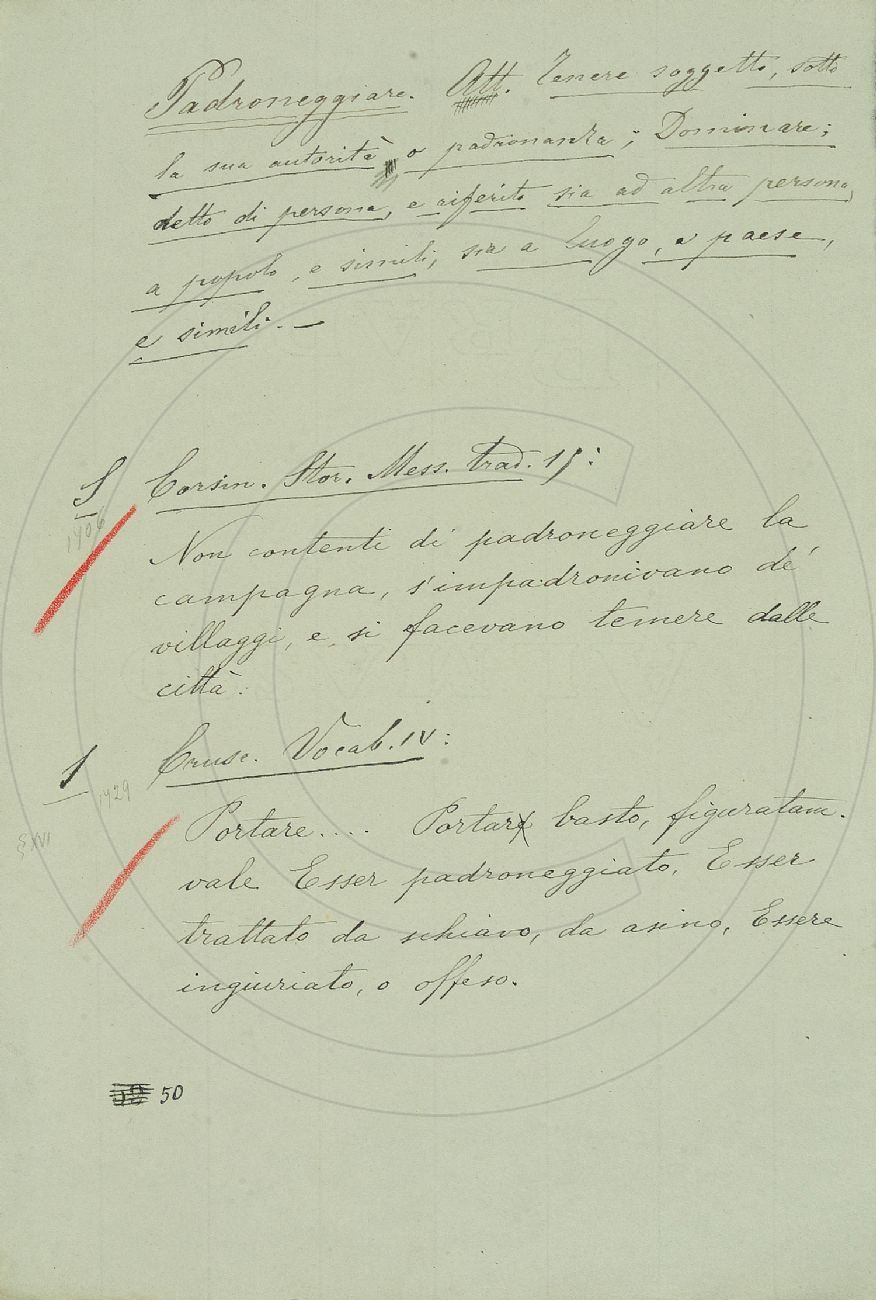 Padroneggiare. Att. Tenere soggetto, sotto
la sua autorità o padronanza; Dominare;
detto di persona, e riferito sia ad altra persona,
a popolo, e simili, sia a luogo, e paese,
e simili. —
S Corsin. Stor. Mess. trad. 15:
1406
Non contenti di padroneggiare la
campagna, s'impadronivano de'
villaggi, e si facevano temere dalle
città.
1 Crusc. Vocab. IV:
1729
Portare.... Portar basto, figuratam.
XVI
vale Esser padroneggiato, Esser
trattato da schiavo, da asino, Essere
ingiuriato, o offeso.
50